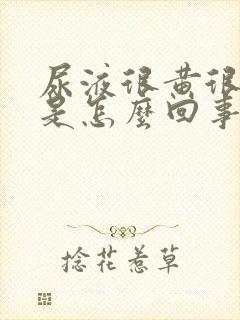 尿液很黄很
是怎麼回事
捻花惹草